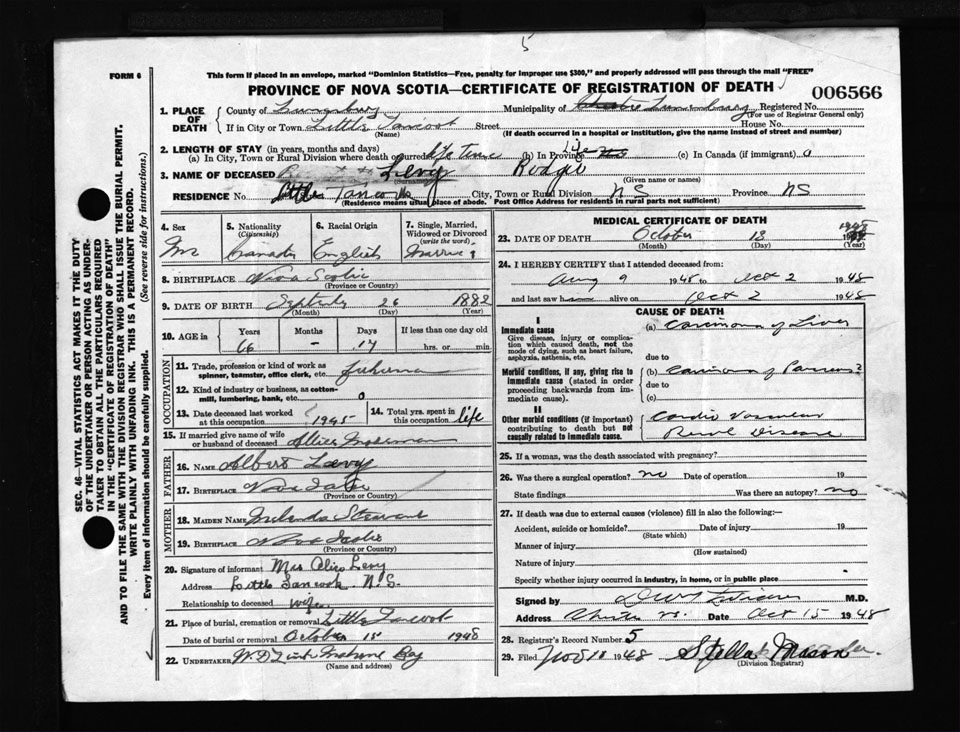 5
FORM 6
This form if placed in an envelope, marked "Dominion Statistics—Free, penalty for improper use $300," and properly addressed will pass through the mail "FREE"
PROVINCE OF NOVA SCOTIA—CERTIFICATE OF REGISTRATION OF DEATH
006566
1. PLACE OF DEATH
County of Lunenburg Municipality of Lunenburg Registered No.
(For use of Registrar General only)
If in City or Town Little Tancook Street House No.
(Name) (If death occurred in a hospital or institution, give the name instead of street and number)
2. LENGTH OF STAY (in years, months and days)
(a) In City, Town or Rural Division where death occurred life time (b) In Province Life (c) In Canada (if immigrant) 0
3. NAME OF DECEASED Levy
(Surname) (Given name or names)
RESIDENCE No. Little Tancook City, Town or Rural Division NS Province NS
(Residence means usual place of abode. Post Office Address for residents in rural parts not sufficient)
4. Sex
5. Nationality
(Citizenship)
Canadian
6. Racial Origin
English
7. Single, Married, Widowed or Divorced
(write the word)
Married
8. BIRTHPLACE Nova Scotia
(Province or Country)
9. DATE OF BIRTH Septemb 26 1882
(Month) (Day) (Year)
10. AGE in
Years Months Days If less than one day old
66 – 17 hrs. or min.
OCCUPATION
11. Trade, profession or kind of work as spinner, teamster, office clerk, etc. fisherman
12. Kind of industry or business, as cotton-mill, lumbering, bank, etc. 0
13. Date deceased last worked at this occupation 1945
14. Total yrs. spent in this occupation life
15. If married give name of wife or husband of deceased
FATHER
16. NAME Albert Levy
17. BIRTHPLACE Nova Scotia
(Province or Country)
MOTHER
18. MAIDEN NAME Stevens
19. BIRTHPLACE Nova Scotia
(Province or Country)
20. Signature of informant Mrs Alice Levy
Address Little Tancook N.S.
Relationship to deceased wife
21. Place of burial, cremation or removal Little Tancook
Date of burial or removal October 15 1948
22. UNDERTAKER Mahone Bay
(Name and address)
MEDICAL CERTIFICATE OF DEATH
23. DATE OF DEATH October 13 1948
(Month) (Day) (Year)
24. I HEREBY CERTIFY that I attended deceased from:
Aug 9 1948 to Oct 2 1948
and last saw him alive on Oct 2 1948
CAUSE OF DEATH
I
Immediate cause
Give disease, injury or complication which caused death, not the mode of dying, such as heart failure, asphyxia, asthenia, etc.
(a) Carcinoma of Liver
due to
Morbid conditions, if any, giving rise to immediate cause (stated in order proceeding backwards from immediate cause).
(b) Carcinoma of Pancreas?
due to
(c)
II
Other morbid conditions (if important) contributing to death but not causally related to immediate cause.
Cardio Vascular
Renal Disease
25. If a woman, was the death associated with pregnancy?
26. Was there a surgical operation? no Date of operation 19
State findings Was there an autopsy? no
27. If death was due to external causes (violence) fill in also the following:—
Accident, suicide or homicide? Date of injury 19
(State which)
Manner of injury
(How sustained)
Nature of injury
Specify whether injury occurred in industry, in home, or in public place
Signed by M.D.
Address Date Oct 15 1948
28. Registrar's Record Number 5
29. Filed Nov 10 1948 Stella Mason
(Division Registrar)
SEC. 46—VITAL STATISTICS ACT MAKES IT THE DUTY OF THE UNDERTAKER OR PERSON ACTING AS UNDERTAKER TO OBTAIN ALL THE PARTICULARS REQUIRED IN THE "CERTIFICATE OF REGISTRATION OF DEATH"
AND TO FILE THE SAME WITH THE DIVISION REGISTRAR WHO SHALL ISSUE THE BURIAL PERMIT.
WRITE PLAINLY WITH UNFADING INK. THIS IS A PERMANENT RECORD.
Every item of information should be carefully supplied. (See reverse side for instructions.)